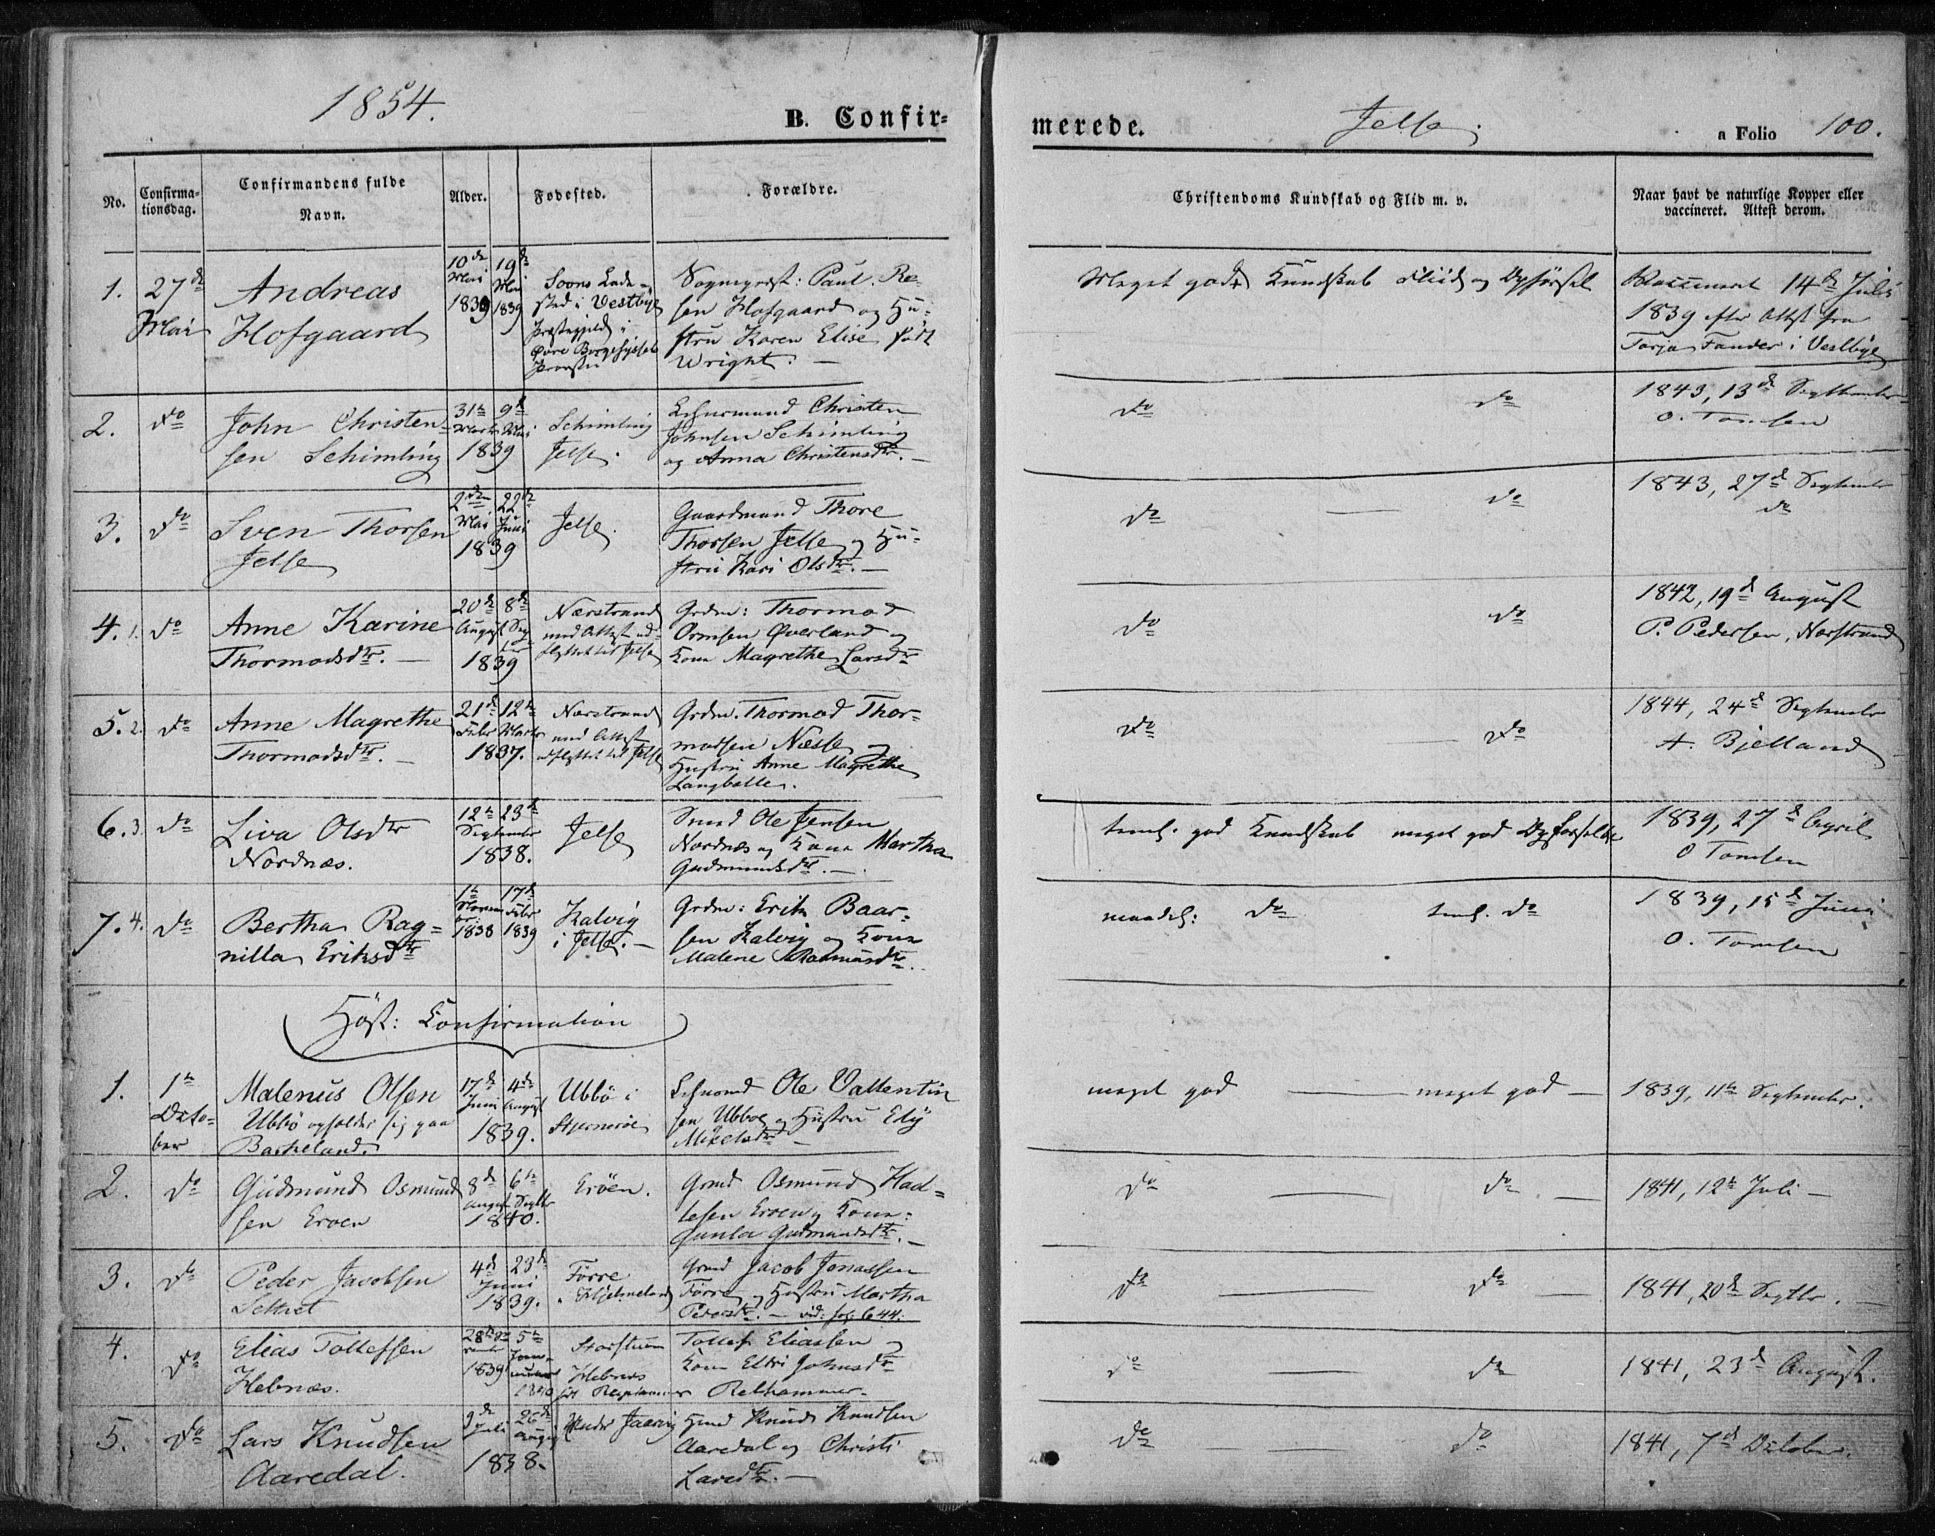 1854.
B. Confir-
merede.
Jelse.
a Folio 100.
No.
Confirma-
tionsdag.
Confirmandens fulde
Navn.
Alder.
Fødested.
Forældre.
Christendoms Kundskab og Flid m. v.
Naar havt de naturlige Kopper eller
vaccineret. Attest derom.
1.
27de
Mai
Andreas
Hofgaard
10de
Mai
1839
19de
Mai
1839
Soons Lade-
sted i Vestbye
Præstegjeld i
Øvre Borgesyssels
Provsti
Sognepræst: Paul. Re-
sen Hofgaard og Hu-
stru Karen Elise født
Wright. —
Meget god Kundskab Fliid og Opførsel
Vaccineret 14de Juli
1839 efter Attest fra
Tander i Vestbye
2.
do
John Christen-
sen Schimling
31te
Marts
9de
Mai
1839
Schimling
Jelse.
Christen
Johnsen Schimling
og Anna Christensdtr. —
do
do
1843, 13de September
O. Tomsen
3.
do
Sven Thorsen
Jelse
2den
Mai
22de
Juni
1839
Jelse.
Gaardmand Thore
Thorsen Jelse og Hu-
stru Kari Olsdtr. —
do
do
1843, 27de September
do
4. 1.
do
Anne Karine
Thormodsdtr. —
20de
August
8de
Sep
1839
Nærstrand
med Attest ud-
flyttet til Jelse
Grdm: Thormod
Ormsen Øverland og
Kone Magrethe Larsdtr
do
do
1842, 19de August
P. Pedersen, Nærstrand
5. 2.
do
Anne Magrethe
Thormodsdtr. —
21de
Febr
12te
Marts
1837.
Nærstrand
med Attest
udflyttet til Jelse
Grdm. Thormod Thor-
modsen Næsse og
Hustru Anne Magrethe
Langballe.
do
do
1844, 24de September
A. Bjelland
6. 3.
do
Liva Olsdtr
Nordnæs.
12te
23de
September
1838.
Jelse
Smed Ole Jensen
Nordnæs og Kone Martha
Gudmundsdtr. —
teml. god Kundskab meget god Opførsel
1839, 27de April
O Tomsen
7. 4.
do
Bertha Rag-
nilla Eriksdtr
1te
Novem
ber
1838
17de
Febr
1839
Kalvig
i Jelse. —
Grdm: Erik Baar-
sen Kalvig og Kone
Malene Rasmusdtr.
maadel: do
teml. do
1839, 15de Juni
O. Tomsen
Høst: Confirmation
1.
1te
Octo-
ber
Malenus Olsen
Ubbø opholder sig paa
Barkeland.
17de
Juni
4de
August
1839.
Ubbø i
Stjernerøe
Ole Vallentin
sen Ubboe og Hustru Eli
Mikelsdtr —
meget god — meget god —
1839, 11te September.
2.
do
Gudmund Osmund
sen Eroen
8de
August
6te
Septbr
1840.
Erøen.
Grmd Osmund Had-
lesen Eroen og Kone:
Gunla Gudmundsdtr. —
do
do —
1841, 12te Juli —
3.
do
Peder Jacobsen
4de
23de
Juni
1839.
Førre
i Hjelmeland
Grmd Jacob Jonassen
Førre og Hustru Martha
Pedersdtr. — vid: fol: 644.
do
do
1841, 20de Septbr. —
4.
do
Elias Tollefsen
Hebnæs.
28de
1839
5te
Janu-
1840
Hebnes
Tollef Eliassen og
Kone Eldri Johnsdtr
Relhammer.
do
do
1841, 23de August.
5.
do
Lars Knudsen
Aaredal.
9de
Juli
26de
August
1838.
Jaarvig
Hmd Knud Knudsen
Aaredal og Christi
Larsdtr. —
do
do
1841, 7de October.